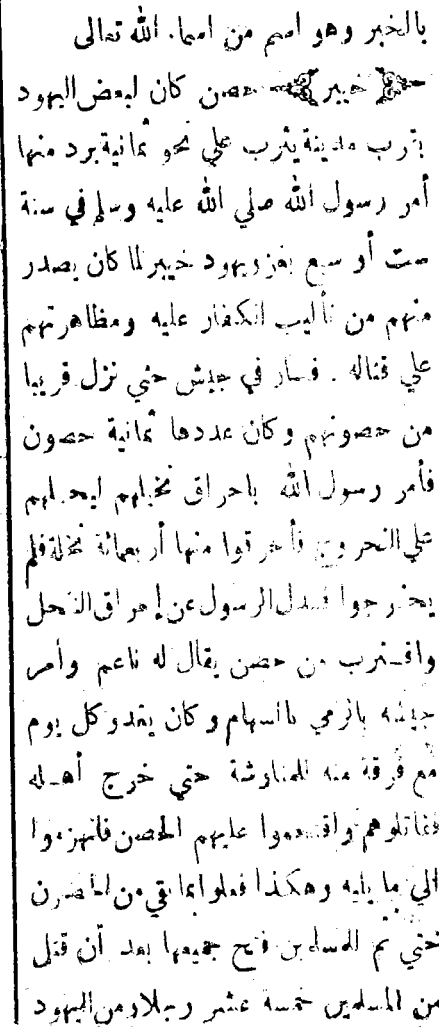 بالخبر وهو اسم من اسماء الله تعالى
خيبر حصن كان لبعض اليهود
بقرب مدينة يثرب علي نحو ثمانية برد منها
أمر رسول الله صلي الله عليه وسلم في سنة
ست أو سبع بغزو يهود خيبر لما كان يصدر
منهم من تأليب الكفار عليه ومظاهرتهم
علي قتاله . فسار في جيش حتي نزل قريبا
من حصونهم وكان عددها ثمانية حصون
فأمر رسول الله باحراق نخيلهم ليحملهم
علي الخروج فأحرقوا منها أربعمائة نخلة فلم
يخرجوا فعدل الرسول عن إحراق النخل
واقترب من حصن يقال له ناعم وأمر
جيشه بالرمي بالسهام وكان يغدو كل يوم
مع فرقة منه للمناوشة حتي خرج أهله
فقاتلوهم واقتحموا عليهم الحصن فانهزموا
الي ما يليه وهكذا فعلوا بما بقي من الحصون
حتي تم للمسلمين فتح جميعها بعد أن قتل
من المسلمين خمسة عشر رجلا ومن اليهود